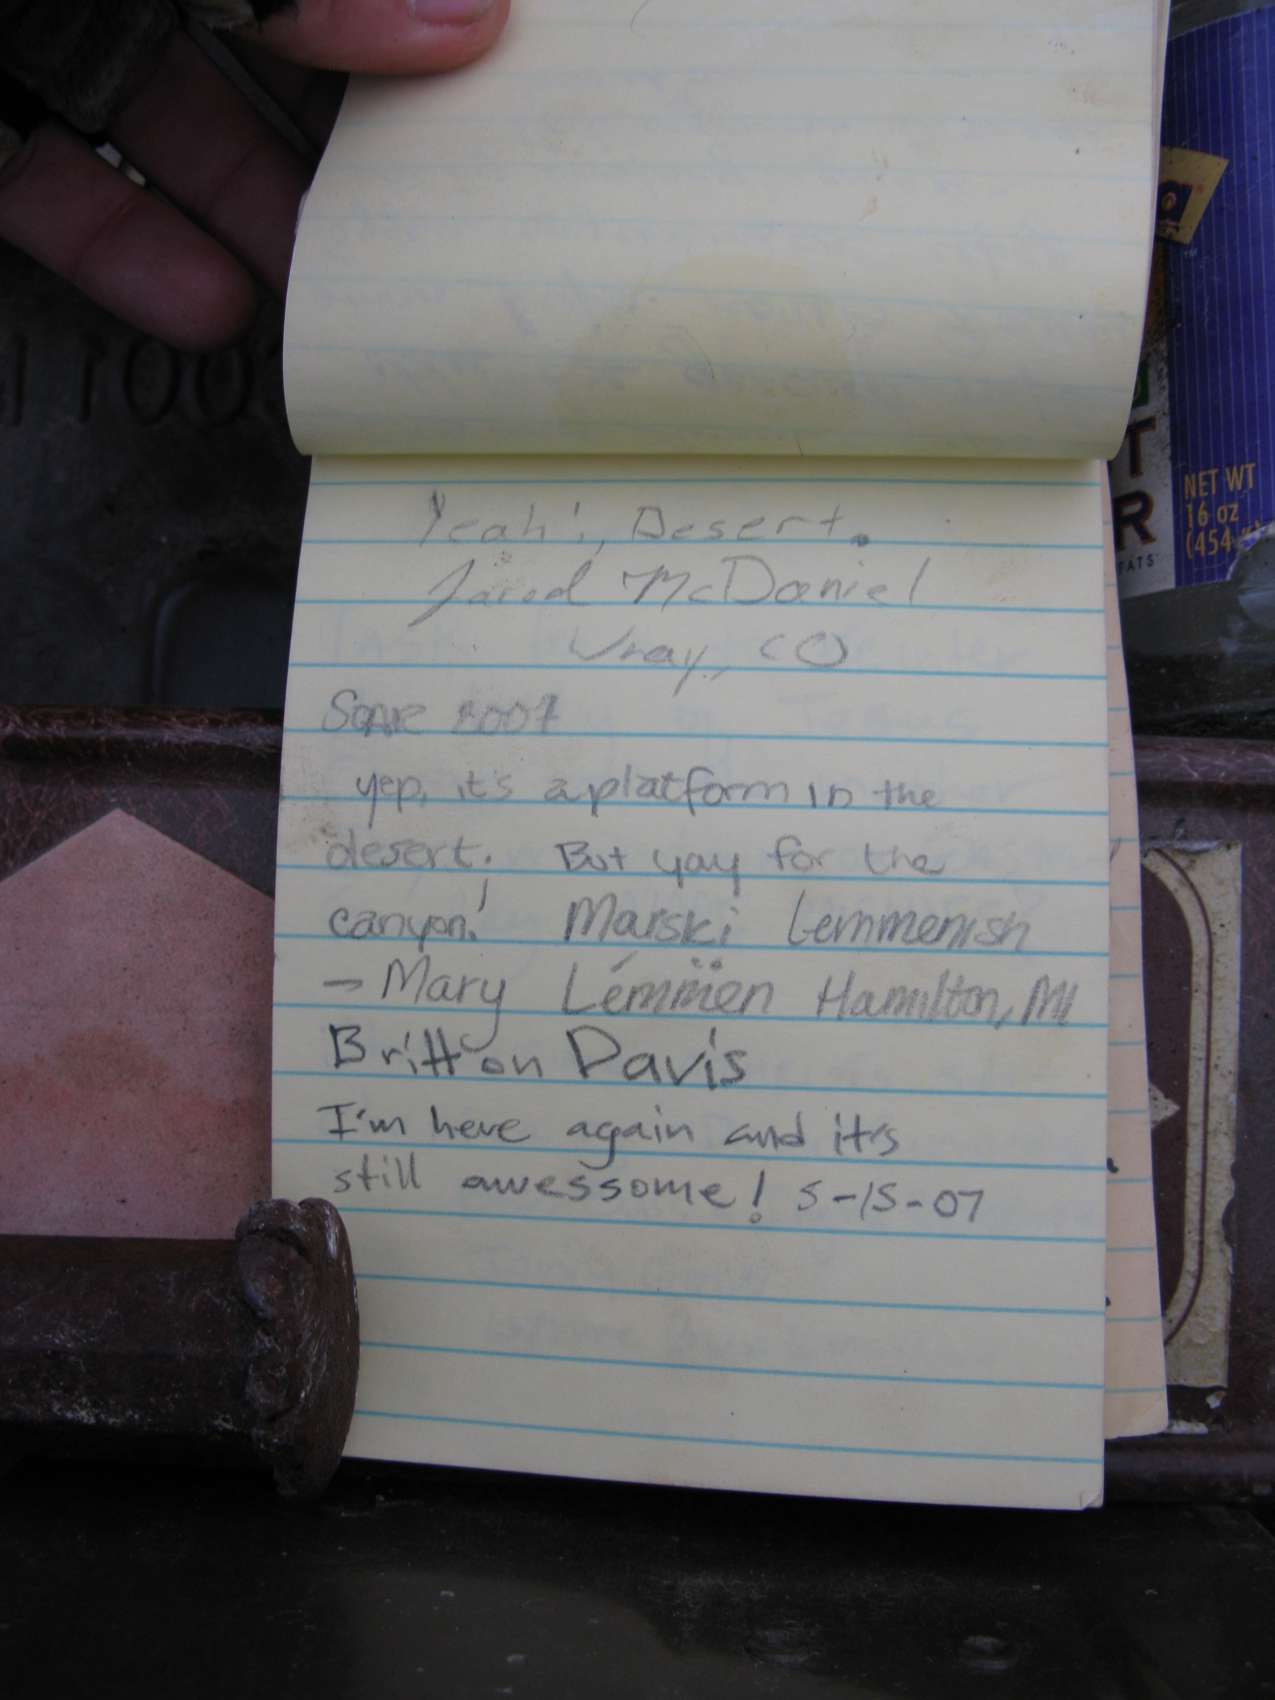 Yeah!, Desert.
Jared McDaniel
Wray, CO
2007
yep, it's a platform in the
desert. But yay for the
canyon! Marski Lemmenish
– Mary Lémmën Hamilton, MI
Britton Davis
I'm here again and it's
still awessome! 5-15-07
NET WT
16 oz
(454
T
R
FATS
1001